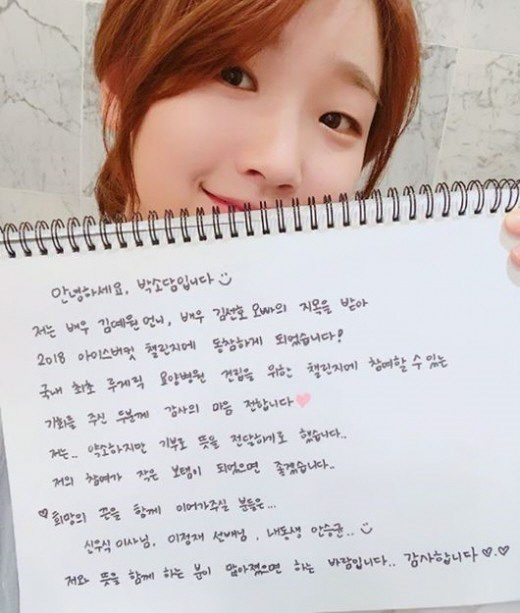 안녕하세요, 박소담입니다
저는 배우 김예원언니, 배우 김선호 오빠의 지목을 받아
2018 아이스버킷 챌린지에 동참하게 되었습니다!
국내 최초 루게릭 요양병원 건립을 위한 챌린지에 참여할 수 있는
기회를 주신 두분께 감사의 마음 전합니다
저는.. 약소하지만 기부로 뜻을 전달하기로 했습니다..
저의 참여가 작은 보탬이 되었으면 좋겠습니다..
♡희망의 끈을 함께 이어가주실 분들은...
신우식 이사님, 이정재 선배님, 내동생 안승균..
저와 뜻을 함께 하는 분이 많아졌으면 하는 바람입니다.. 감사합니다♡.♡